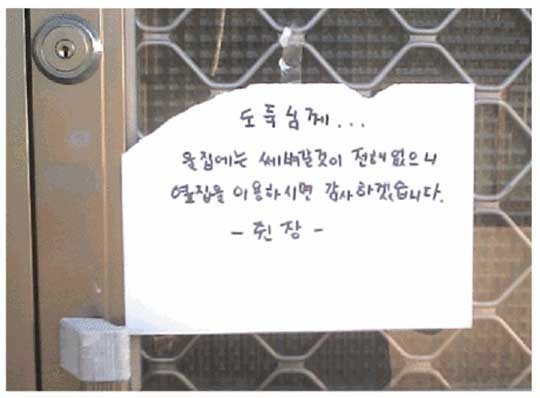 도둑님께...
울집에는 쎄벼갈것이 전혜 없으니
옆집을 이용하시면 감사하겠습니다.
- 쥔장 -